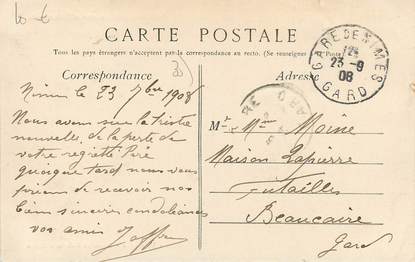 10 €
CARTE POSTALE
Tous les pays étrangers n'acceptent pas la correspondance au recto. (Se renseigner
Correspondance
Adresse
30
GARE DE NIMES
23-9
08
GARD
Nimes le 23 7bre 1908
Nous avons su la triste
nouvelle, de la perte de
votre regretté Père
quoique tard nous vous
prions de recevoir nos
bien sincères condoléances
vos amis Joffre
Mr & Mme Moine
Maison Lapierre
Futailles
Beaucaire
Gard